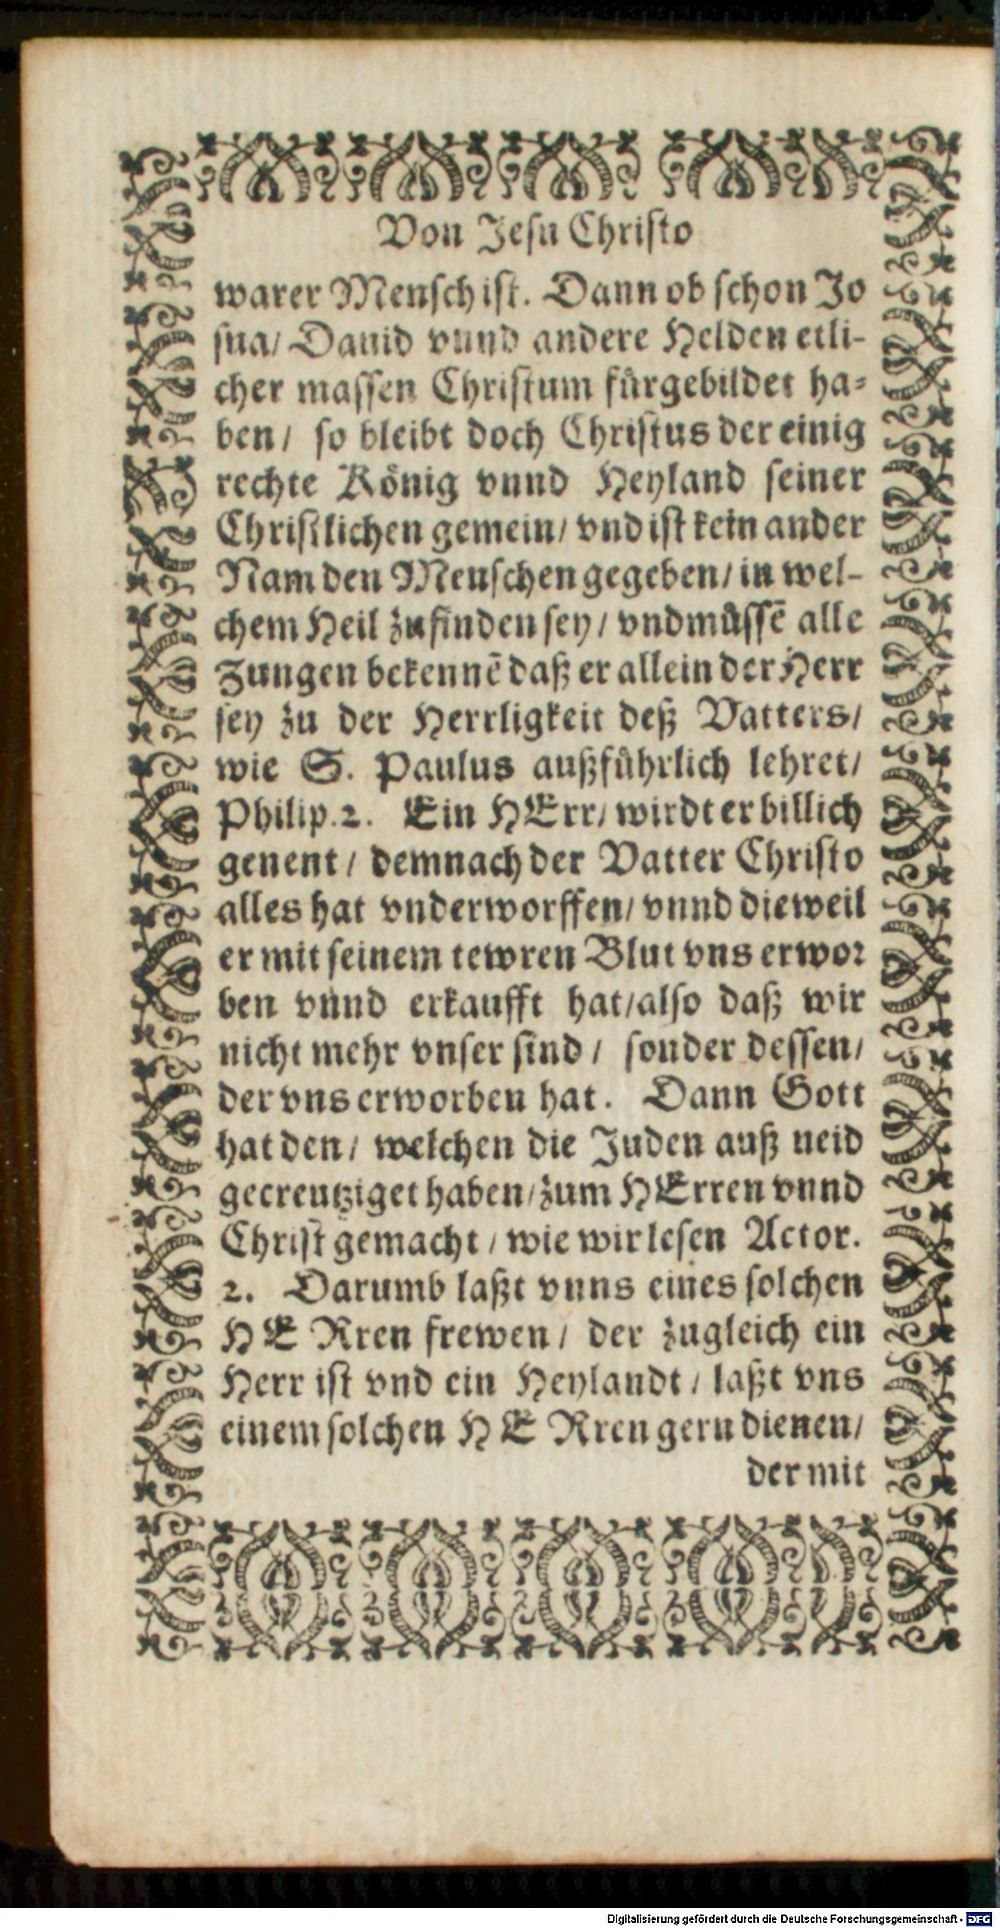 Von Jesu Christo
warer Mensch ist. Dann ob schon Jo
sua/ Dauid vnnd andere Helden etli-
cher massen Christum fürgebildet ha-
ben/ so bleibt doch Christus der einig
rechte König vnnd Heyland seiner
Christlichen gemein/ vnd ist kein ander
Nam den Menschen gegeben/ in wel-
chem Heil zufinden sey/ vnd müssē alle
Zungen bekennē daß er allein der Herr
sey zu der Herrligkeit deß Vatters/
wie S. Paulus außführlich lehret/
Philip.2. Ein HErr/ wirdt er billich
genent/ demnach der Vatter Christo
alles hat vnderworffen/ vnnd dieweil
er mit seinem tewren Blut vns erwor
ben vnnd erkaufft hat/also daß wir
nicht mehr vnser sind/ sonder dessen/
der vns erworben hat. Dann Gott
hat den/ welchen die Juden auß neid
gecreutziget haben/zum HErren vnnd
Christ gemacht/ wie wir lesen Actor.
2. Darumb laßt vnns eines solchen
HE Rren frewen/ der zugleich ein
Herr ist vnd ein Heylandt/ laßt vns
einem solchen HE Rren gern dienen/
der mit
Digitalisierung gefördert durch die Deutsche Forschungsgemeinschaft - DFG